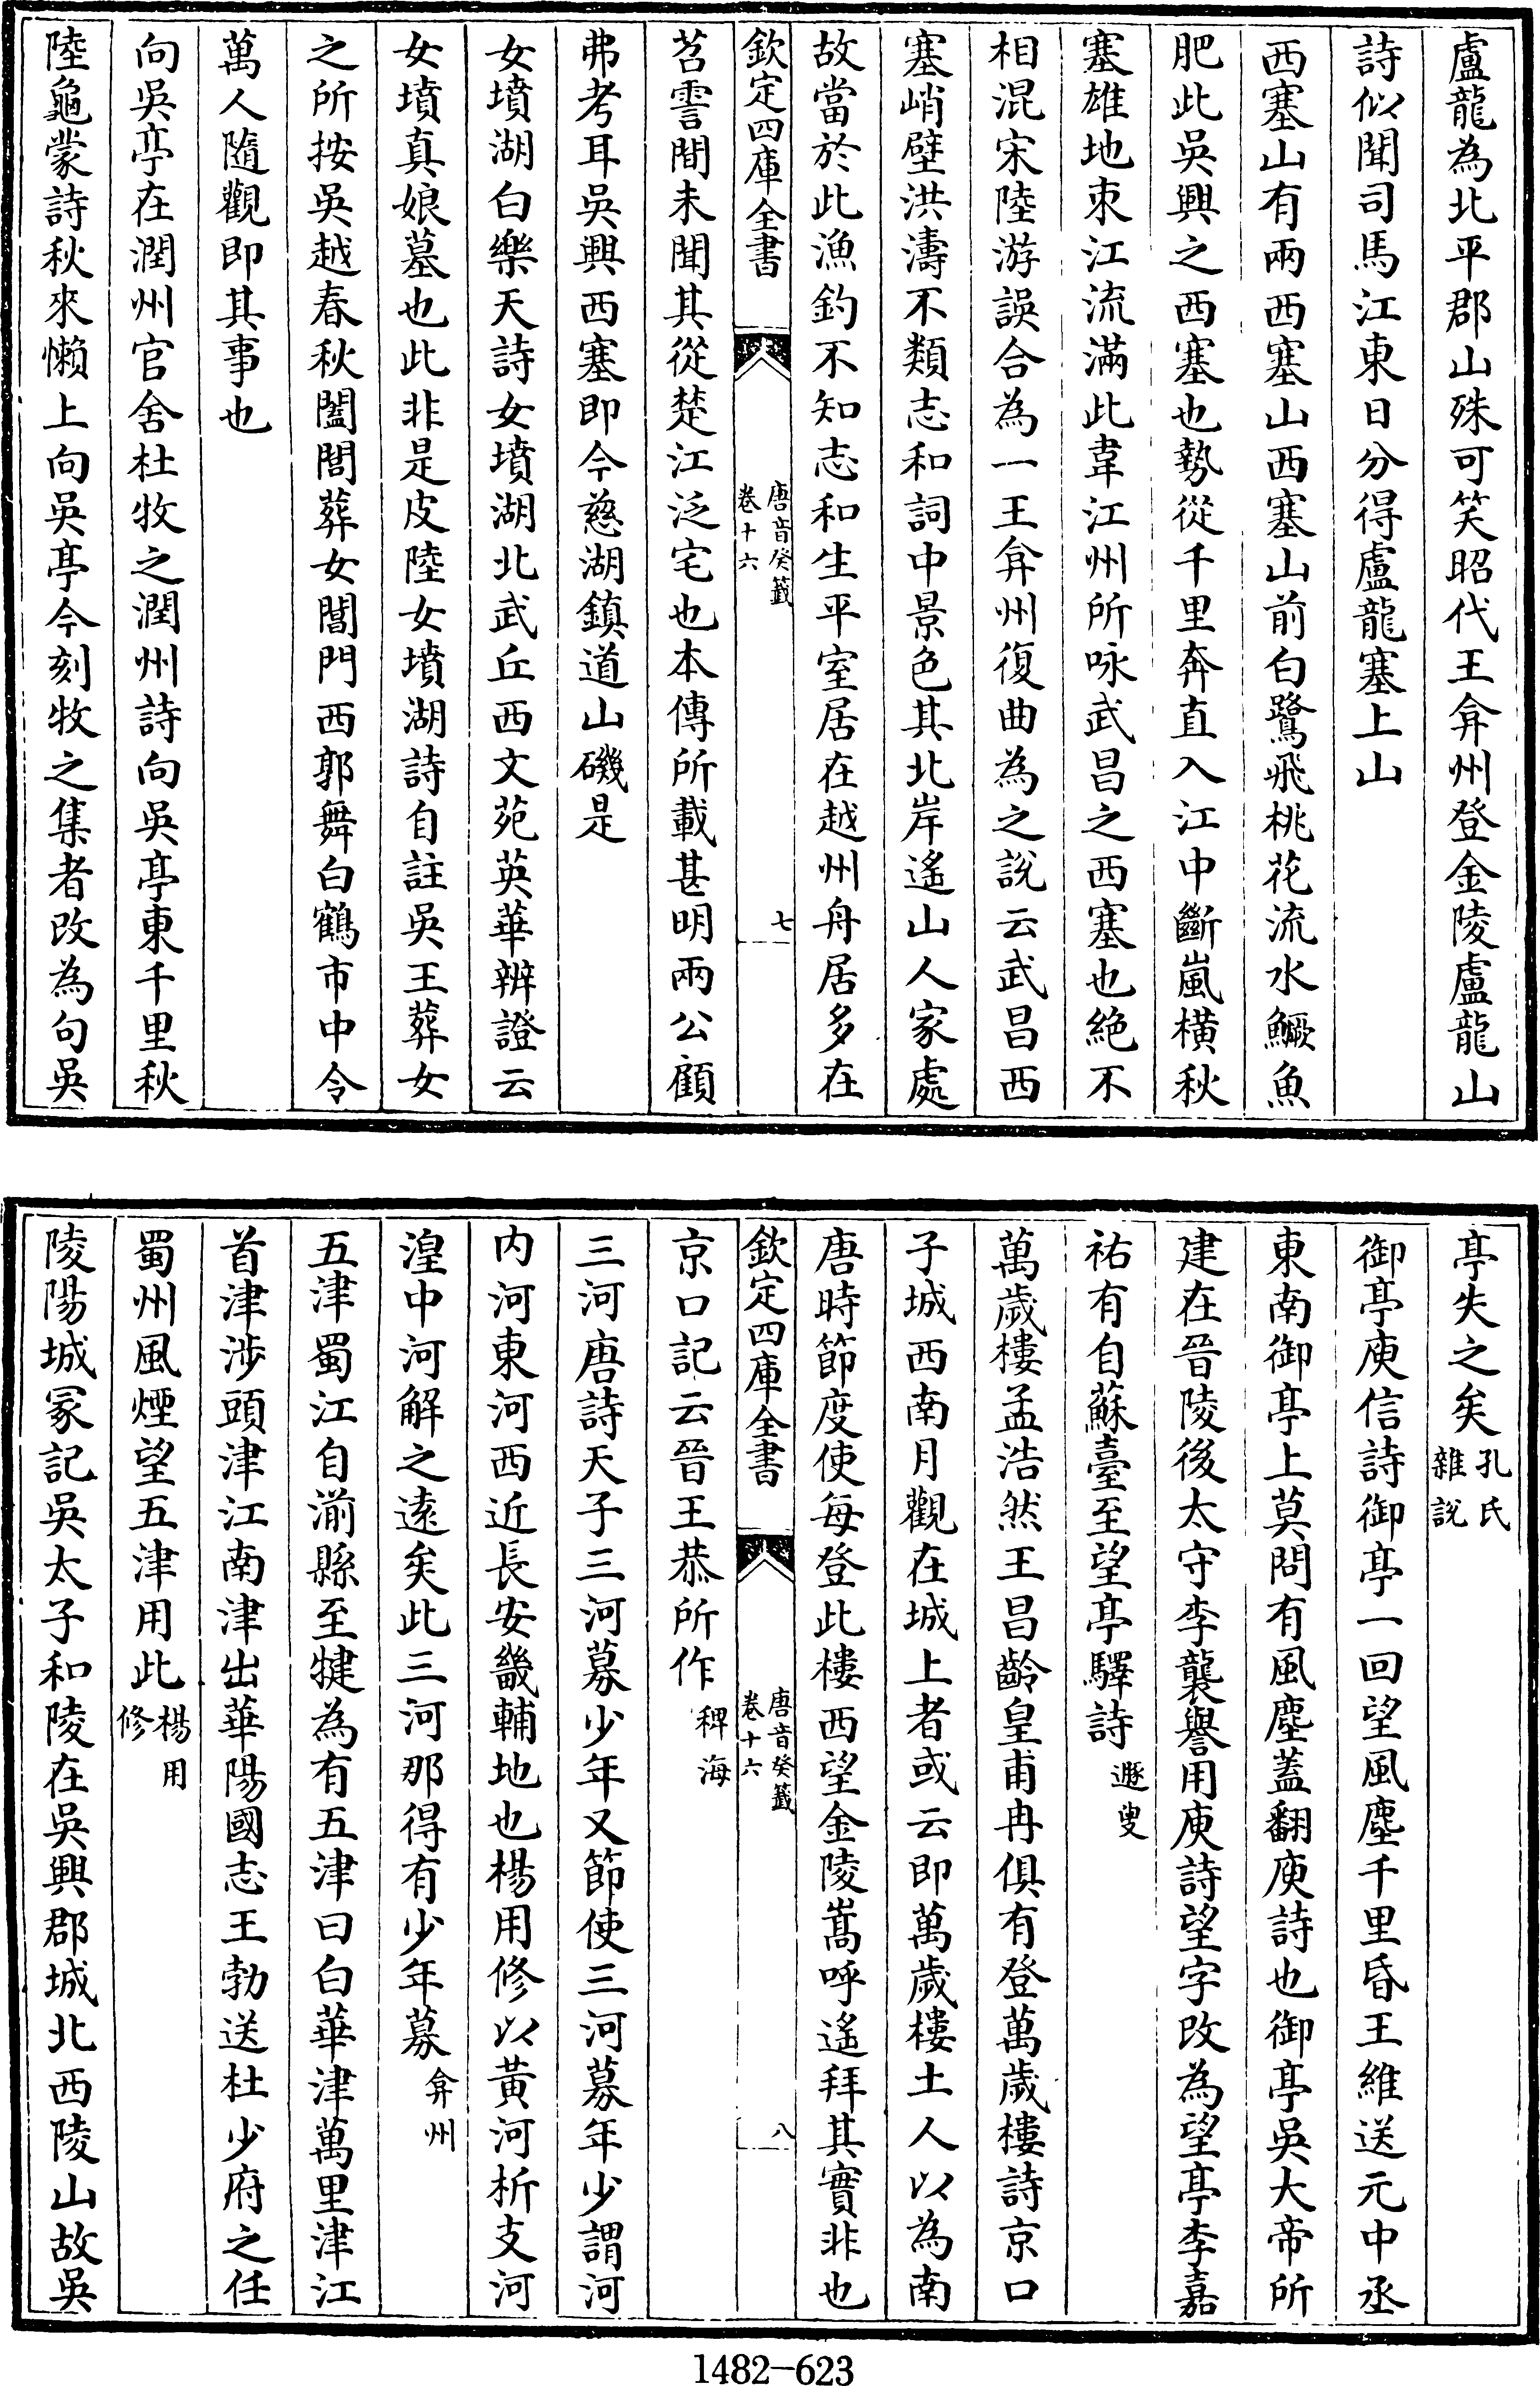 盧龍為北平郡山殊可笑昭代王弇州登金陵盧龍山
詩似聞司馬江東日分得盧龍塞上山
西塞山有兩西塞山西塞山前白鷺飛桃花流水鱖魚
肥此吳興之西塞也勢從千里奔直入江中斷嵐橫秋
塞雄地束江流滿此韋江州所咏武昌之西塞也絶不
相混宋陸游誤合為一王弇州復曲為之說云武昌西
塞峭壁洪濤不類志和詞中景色其北岸遙山人家處
故當於此漁釣不知志和生平室居在越州舟居多在
欽定四庫全書
唐音癸籤
卷十六
七
苕霅間未聞其從楚江泛宅也本傳所載甚明兩公顧
弗考耳吳興西塞即今慈湖鎮道山磯是
女墳湖白樂天詩女墳湖北武丘西文苑英華辨證云
女墳真娘墓也此非是皮陸女墳湖詩自註吳王葬女
之所按吳越春秋闔閭葬女閶門西郭舞白鶴市中令
萬人隨觀即其事也
向吳亭在潤州官舍杜牧之潤州詩向吳亭東千里秋
陸龜蒙詩秋來懶上向吳亭今刻牧之集者改為句吳
亭失之矣
孔氏
雜說
御亭庾信詩御亭一回望風塵千里昏王維送元中丞
東南御亭上莫問有風塵蓋翻庾詩也御亭吳大帝所
建在晉陵後太守李襲譽用庾詩望字改為望亭李嘉
祐有自蘇臺至望亭驛詩
遯叟
萬歲樓孟浩然王昌齡皇甫冉俱有登萬歲樓詩京口
子城西南月觀在城上者或云即萬歲樓土人以為南
唐時節度使每登此樓西望金陵嵩呼遙拜其實非也
欽定四庫全書
唐音癸籤
卷十六
八
京口記云晉王恭所作
稗海
三河唐詩天子三河募少年又節使三河募年少謂河
内河東河西近長安畿輔地也楊用修以黃河析支河
湟中河解之遠矣此三河那得有少年募
弇州
五津蜀江自湔縣至犍為有五津曰白華津萬里津江
首津涉頭津江南津出華陽國志王勃送杜少府之任
蜀州風煙望五津用此
楊用
修
陵陽城冢記吳太子和陵在吳興郡城北西陵山故吳
1482-623